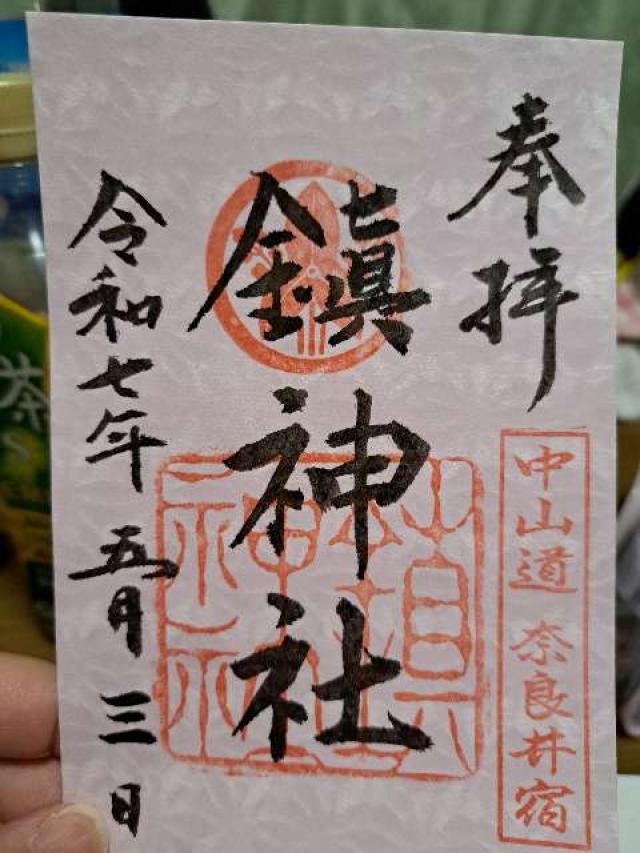 奉拝
中山道 奈良井宿
鎮神社
鎭神社
令和七年 五月 三 日
茶